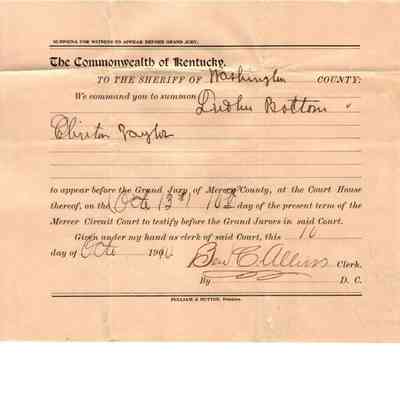 SUBPŒNA FOR WITNESS TO APPEAR BEFORE GRAND JURY.
The Commonwealth of Kentucky.
TO THE SHERIFF OF Washington COUNTY:
We command you to summon Bottom
Clinton Taylor
to appear before the Grand Jury of Mercer County, at the Court House
thereof, on the Octo 13th 1910 day of the present term of the
Mercer Circuit Court to testify before the Grand Jurors in said Court.
Given under my hand as clerk of said Court, this 10
day of Octo 1910 Ben C. Allens Clerk.
By D. C.
PULLIAM & HUTTON, Printers.